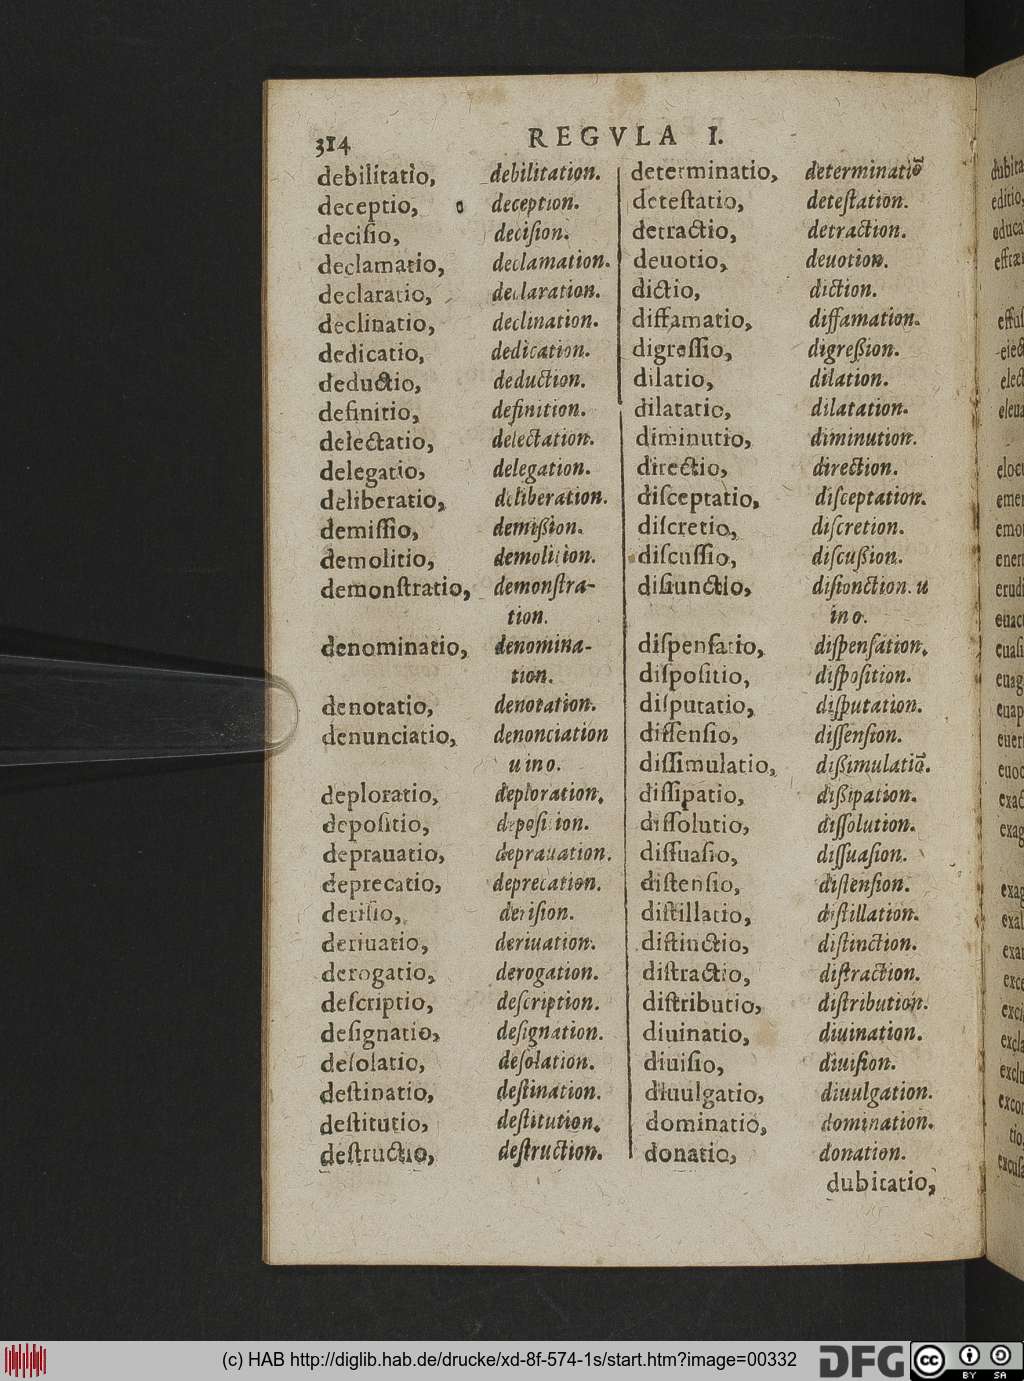 314 REGVLA I.
debilitatio, debilitation.
deceptio, deception.
deciſio, deciſion.
declamatio, declamation.
declaratio, declaration.
declinatio, declination.
dedicatio, dedication.
deductio, deduction.
definitio, definition.
delectatio, delectation.
delegatio, delegation.
deliberatio, deliberation.
demiſſio, demißion.
demolitio, demolition.
demonſtratio, demonſtra-
tion.
denominatio, denomina-
tion.
denotatio, denotation.
denunciatio, denonciation
u in o.
deploratio, deploration.
depoſitio, depoſition.
deprauatio, deprauation.
deprecatio, deprecation.
deriſio, deriſion.
deriuatio, deriuation.
derogatio, derogation.
deſcriptio, deſcription.
deſignatio, deſignation.
deſolatio, deſolation.
deſtinatio, deſtination.
deſtitutio, deſtitution.
deſtructio, deſtruction.
determinatio, determinatiō
deteſtatio, deteſtation.
detractio, detraction.
deuotio, deuotion.
dictio, diction.
diffamatio, diffamation.
digreſſio, digreßion.
dilatio, dilation.
dilatatio, dilatation.
diminutio, diminution.
directio, direction.
diſceptatio, diſceptation.
diſcretio, diſcretion.
diſcuſſio, diſcußion.
diſiunctio, diſionction. u
in o.
diſpenſatio, diſpenſation.
diſpoſitio, diſpoſition.
diſputatio, diſputation.
diſſenſio, diſſenſion.
diſſimulatio, dißimulatiō.
diſſipatio, dißipation.
diſſolutio, diſſolution.
diſſuaſio, diſſuaſion.
diſtenſio, diſtenſion.
diſtillatio, diſtillation.
diſtinctio, diſtinction.
diſtractio, diſtraction.
diſtributio, diſtribution.
diuinatio, diuination.
diuiſio, diuiſion.
diuulgatio, diuulgation.
dominatio, domination.
donatio, donation.
dubitatio,
(c) HAB http://diglib.hab.de/drucke/xd-8f-574-1s/start.htm?image=00332
DFG
cc BY SA